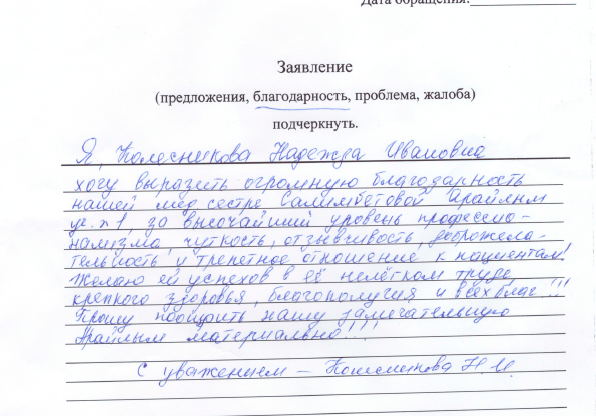 Дата обращения:
Заявление
(предложения, благодарность, проблема, жалоба)
подчеркнуть.
Я, Колесникова Надежда Ивановна
хочу выразить огромную благодарность
нашей мед. сестре Салимбетовой Арайлым
уч. №1, за высочайший уровень профессио-
нализма, чуткость, отзывчивость, доброжела-
тельность и трепетное отношение к пациентам!
Желаю ей успехов в её нелёгком труде,
крепкого здоровья, благополучия и всех благ!!!
Прошу поощрить нашу замечательную
Арайлым материально!!!
С уважением – Н.И.